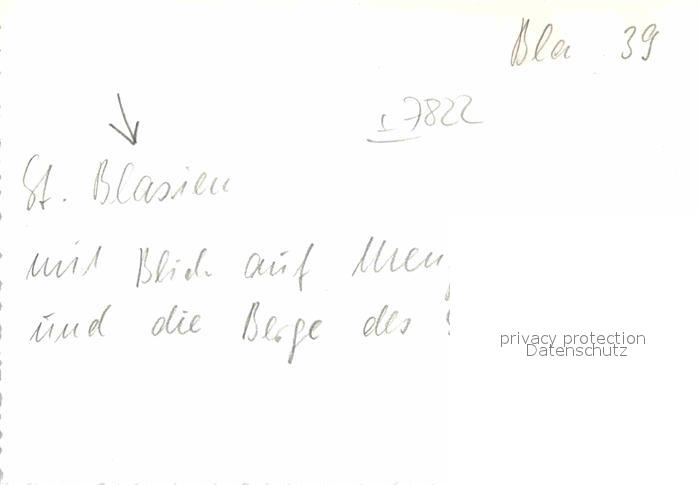 Bla 39
1 7822
St. Blasien
mit Blick auf
und die Berge des
privacy protection
Datenschutz